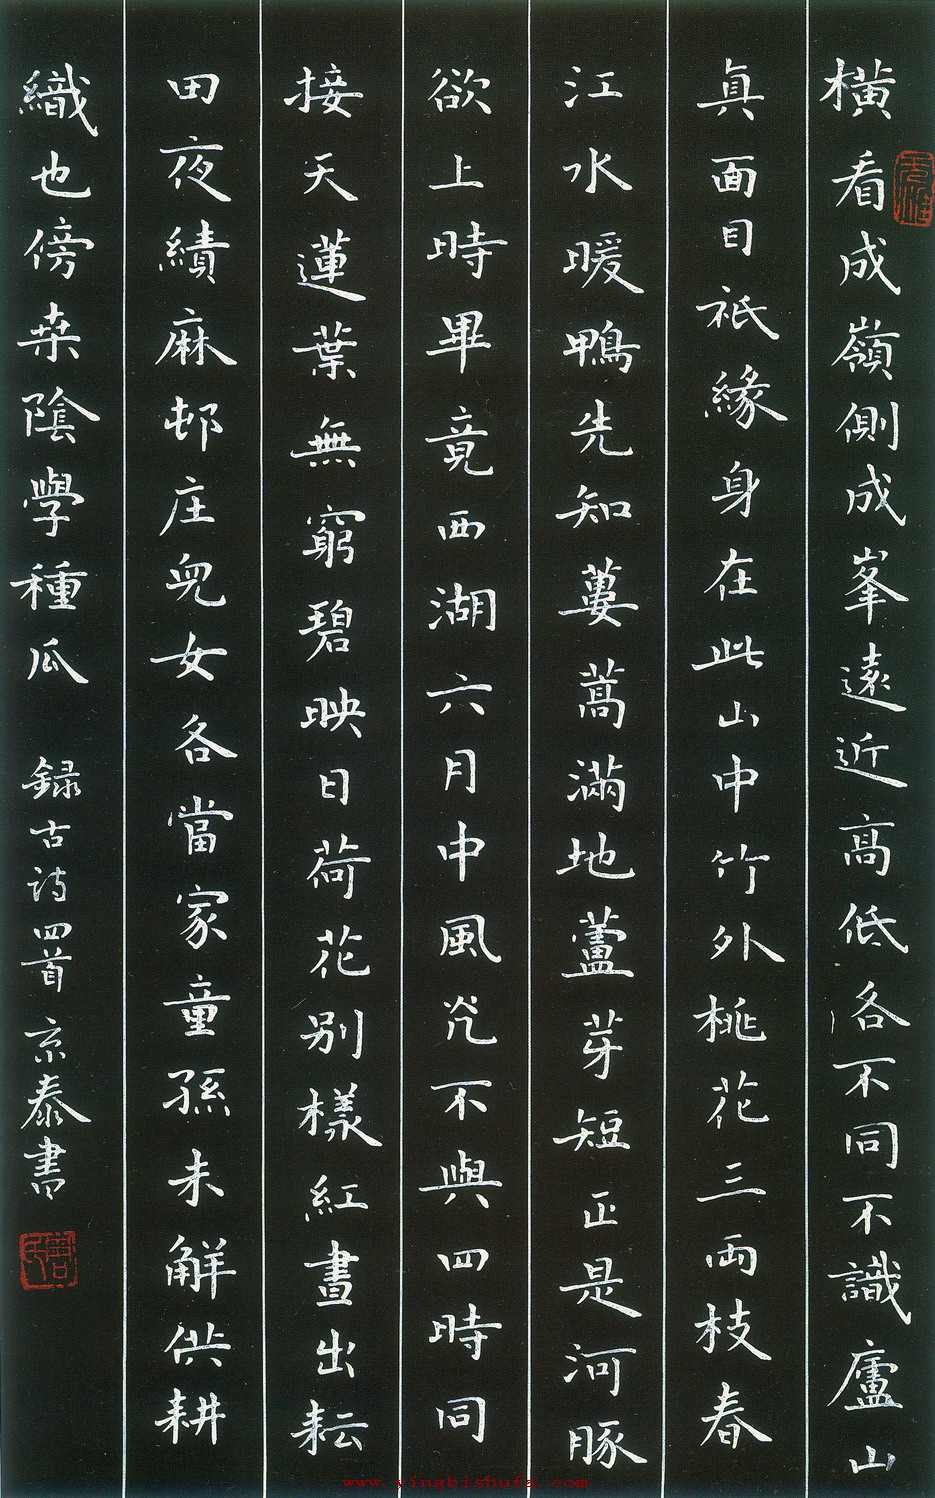 橫看成嶺側成峯遠近高低各不同不識廬山
真面目祇緣身在此山中竹外桃花三兩枝春
江水暖鴨先知蔞蒿滿地蘆芽短正是河豚
欲上時畢竟西湖六月中風光不與四時同
接天蓮葉無窮碧映日荷花别樣紅晝出耘
田夜績麻邨庄兒女各當家童孫未解供耕
織也傍桒陰學種瓜
録古詩四首京泰書
www.yingbishufa.com